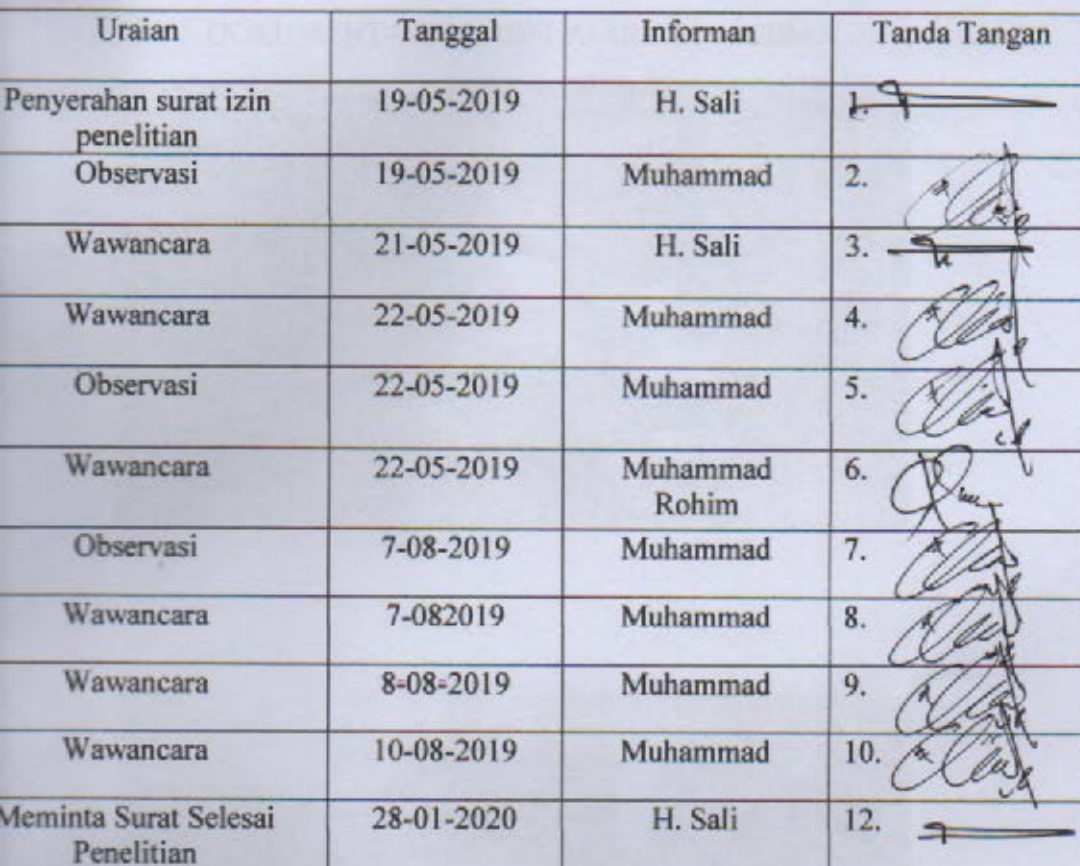 Uraian Tanggal Informan Tanda Tangan
Penyerahan surat izin 19-05-2019 H. Sali 1.
penelitian
Observasi 19-05-2019 Muhammad 2.
Wawancara 21-05-2019 H. Sali 3.
Wawancara 22-05-2019 Muhammad 4.
Observasi 22-05-2019 Muhammad 5.
Wawancara 22-05-2019 Muhammad 6.
Rohim
Observasi 7-08-2019 Muhammad 7.
Wawancara 7-082019 Muhammad 8.
Wawancara 8-08-2019 Muhammad 9.
Wawancara 10-08-2019 Muhammad 10.
Meminta Surat Selesai 28-01-2020 H. Sali 12.
Penelitian